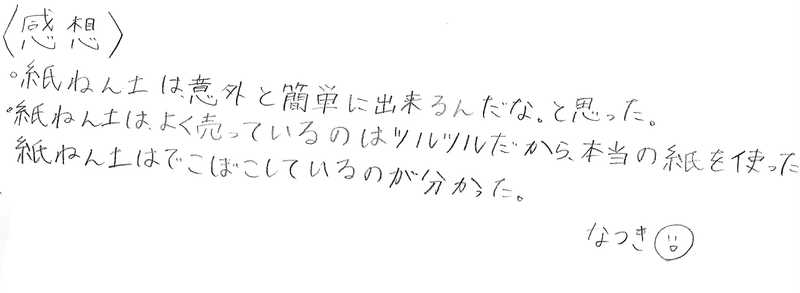 〈感想〉
・紙ねん土は、意外と簡単に出来るんだな。と思った。
・紙ねん土は、よく売っているのはツルツルだから、本当の紙を使った
紙ねん土はでこぼこしているのが分かった。
なつき